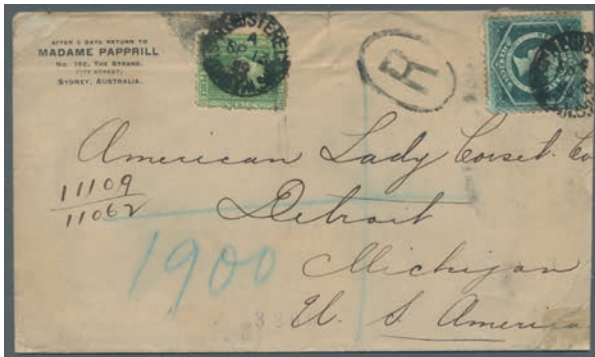 AFTER 5 DAYS RETURN TO
MADAME PAPPRILL
No. 192, THE STRAND,
PITT STREET,
SYDNEY, AUSTRALIA.
REGISTERED
R
American Lady Corset. Co
11109
11062
Detroit
1900
Michigan
U. S America